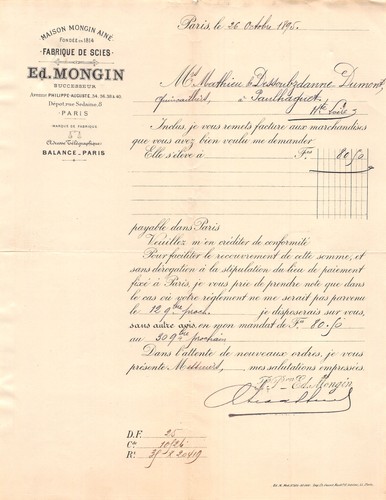 MAISON MONGIN AINÉ
FONDÉE EN 1814
FABRIQUE DE SCIES
Ed. MONGIN
SUCCESSEUR
AVENUE PHILIPPE-AUGUSTE, 34, 36, 38 & 40.
Dépot, rue Sedaine, 5
PARIS
MARQUE DE FABRIQUE
Adresse Télégraphique:
BALANCE, PARIS
Paris, le 26 Octobre 1895.
Mrs Mathieu & Dessoubzdanne Dumont,
Quincailliers, à Paulhaguet
Hte Loire
Inclus, je vous remets facture aux marchandises
que vous avez bien voulu me demander
Elle s'élève à Frs 80 50
payable dans Paris
Veuillez m'en créditer de conformité
Pour faciliter le recouvrement de cette somme, et
sans dérogation à la stipulation du lieu de paiement
fixé à Paris, je vous prie de prendre note que dans
le cas où votre règlement ne me serait pas parvenu
le 12 9bre proch. je disposerais sur vous,
sans autre avis, en mon mandat de Frs 80.50
au 30 9bre prochain
Dans l'attente de nouveaux ordres, je vous
présente Messieurs, mes salutations empressées.
Ed. Mongin
D.F. 25
Ct
Rt 20419